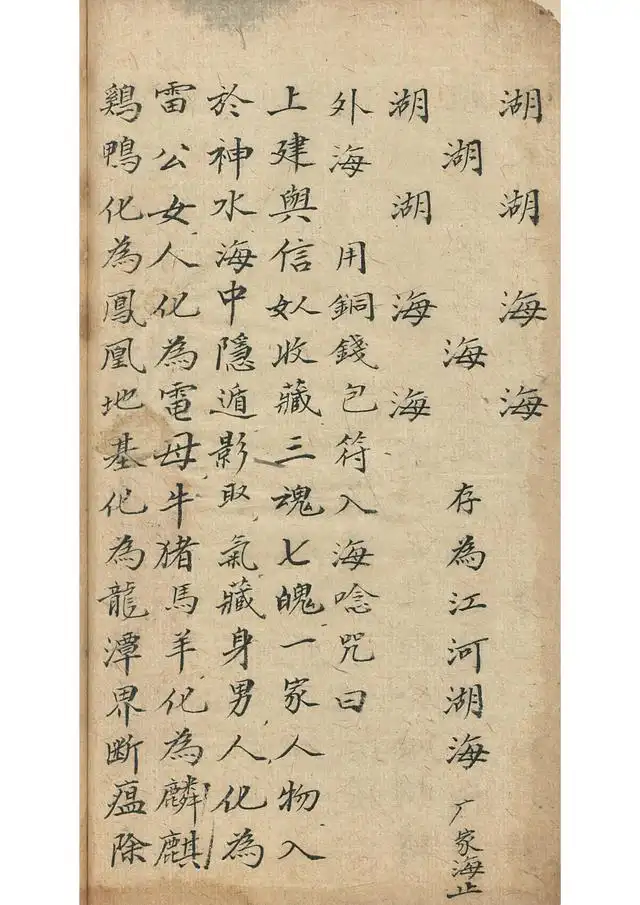 湖湖海海
湖海存為江河湖海厂家海止
湖湖海海
外海用銅錢包符入海唸咒曰
上建與信人收藏三魂七魄一家人物入
於神水海中隱遁影取氣藏身男人化為
雷公女人化為電母牛猪馬羊化為麟麒
鷄鴨化為鳳凰地基化為龍潭界断瘟除